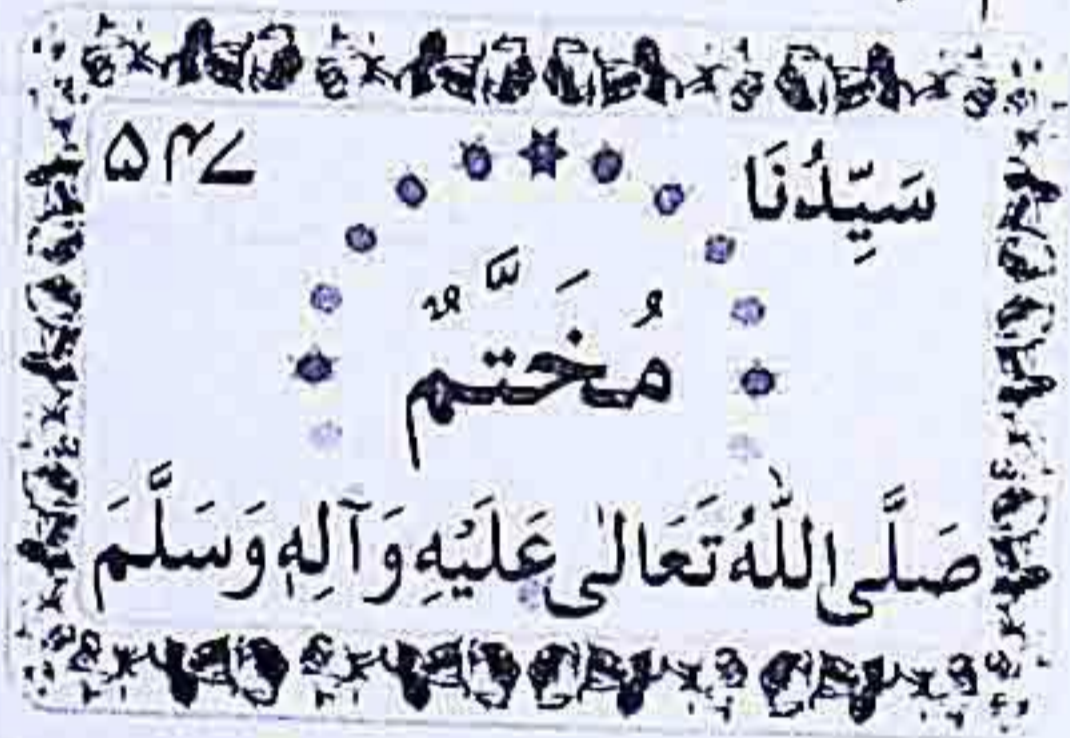 سَيِّدُنَا ۵۴۷
مُخَتَّمٌ
صَلَّى اللّٰهُ تَعَالٰى عَلَيْهِ وَآلِهٖ وَسَلَّمَ